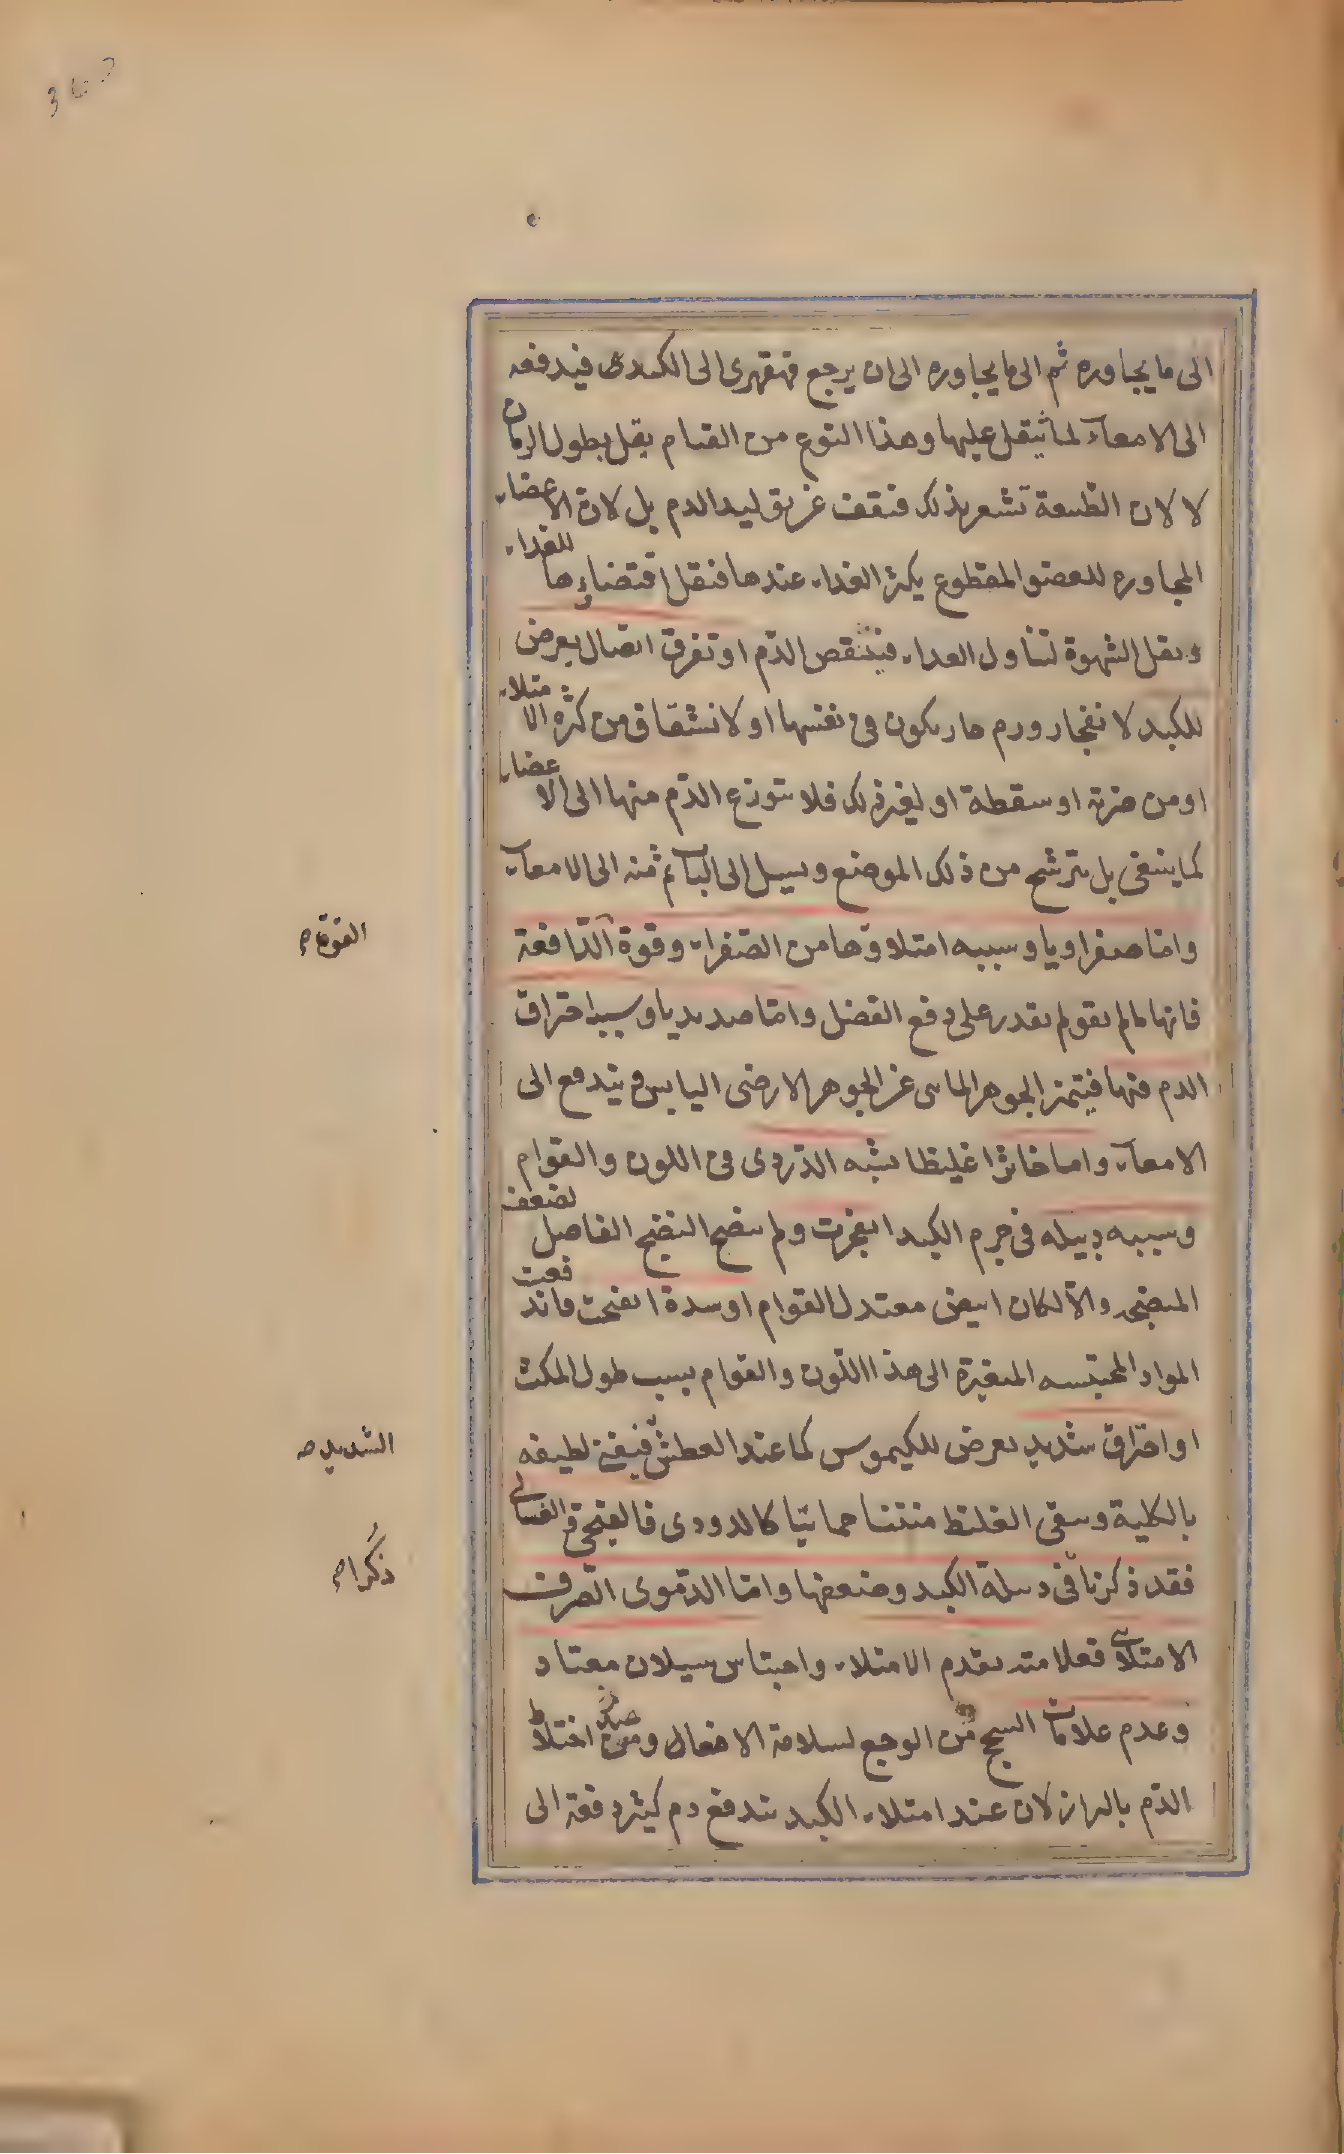 الى ما يجاوره ثم الى ما يجاوره الى ان يرجع قهقهرى الى الكبدى فيدفعه
الى الامعآء لما يثقل عليها وهذا النوع من القيام يقل بطول الزمان
لا لان الطبيعة تشعر بذلك فتقف عن توليد الدم بل لان الاعضاء
المجاوره للعضو المقطوع يكثر الغداء عندها فتقل اقتضاءها للغداء
ويقل الشهوة لتناول الغداء فينتقص الدّم او تفرق اتصال يعرض
للكبد لانفجار ورم حار يكون فى نفسها او لانشقاق من كثرة الامتلاء
او من ضربة او سقطة او لغير ذلك فلا يتوزع الدّم منها الى الاعضاء
كما ينبغى بل يترشح من ذلك الموضع ويسيل الى الباب ثم منه الى الامعآء
وامّا صفراويا وسببه امتلاوها من الصّفراء وقوة الدّافعة
فانها ما لم يقو لم يقدر على دفع الفضل وامّا صديديا وسببه احتراق
الدم فيها فيتميز الجوهر المائى عن الجوهر الارضى اليابس ويندفع الى
الامعآء واما خاثرا غليظا يشبه الدّردى فى اللون والقوام
وسببه دبيله فى جرم الكبد انفجرت ولم ينضج النضج الفاضل لضعف
المنضج والّا لكان ابيض معتدل القوام او سدة انفتحت فاندفعت
المواد المحتبسه المتغيرة الى هذا اللّون والقوام بسبب طول المكث
او احتراق شديد يعرض للكيموس كما عند العطش فيفنى لطيفه
بالكلية ويبقى الغليظ منتنا حمائيّا كالدردى فالقيحى والغسالى
فقد ذكرنا فى دبيلة الكبد وضعفها وامّا الدّموى الصّرف
الامتلائى فعلامته تقدم الامتلاء واحتباس سيلان معتاد
وعدم علامات السحج من الوجع لسلامة الافعال وعدم اختلاط
الدّم بالبراز لان عند امتلاء الكبد يندفع دم كثير دفعة الى
القوة ص
الشديد ص
ذكرا ص